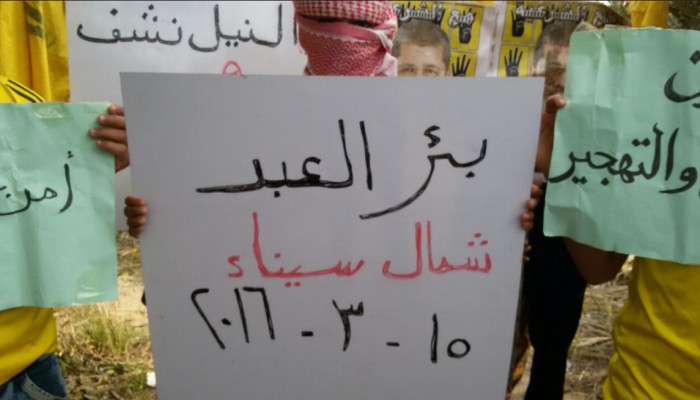 النيل نشف
بئر العبد
شمال سيناء
١٥ - ٣ - ٢٠١٦
والتهجير
أمن